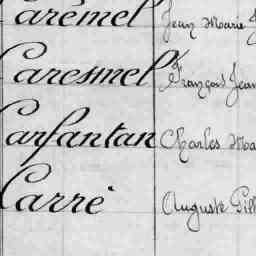 Carêmel Jean Marie
Caresmel François Jean
Carfantan Charles Ma
Carré Auguste Gill